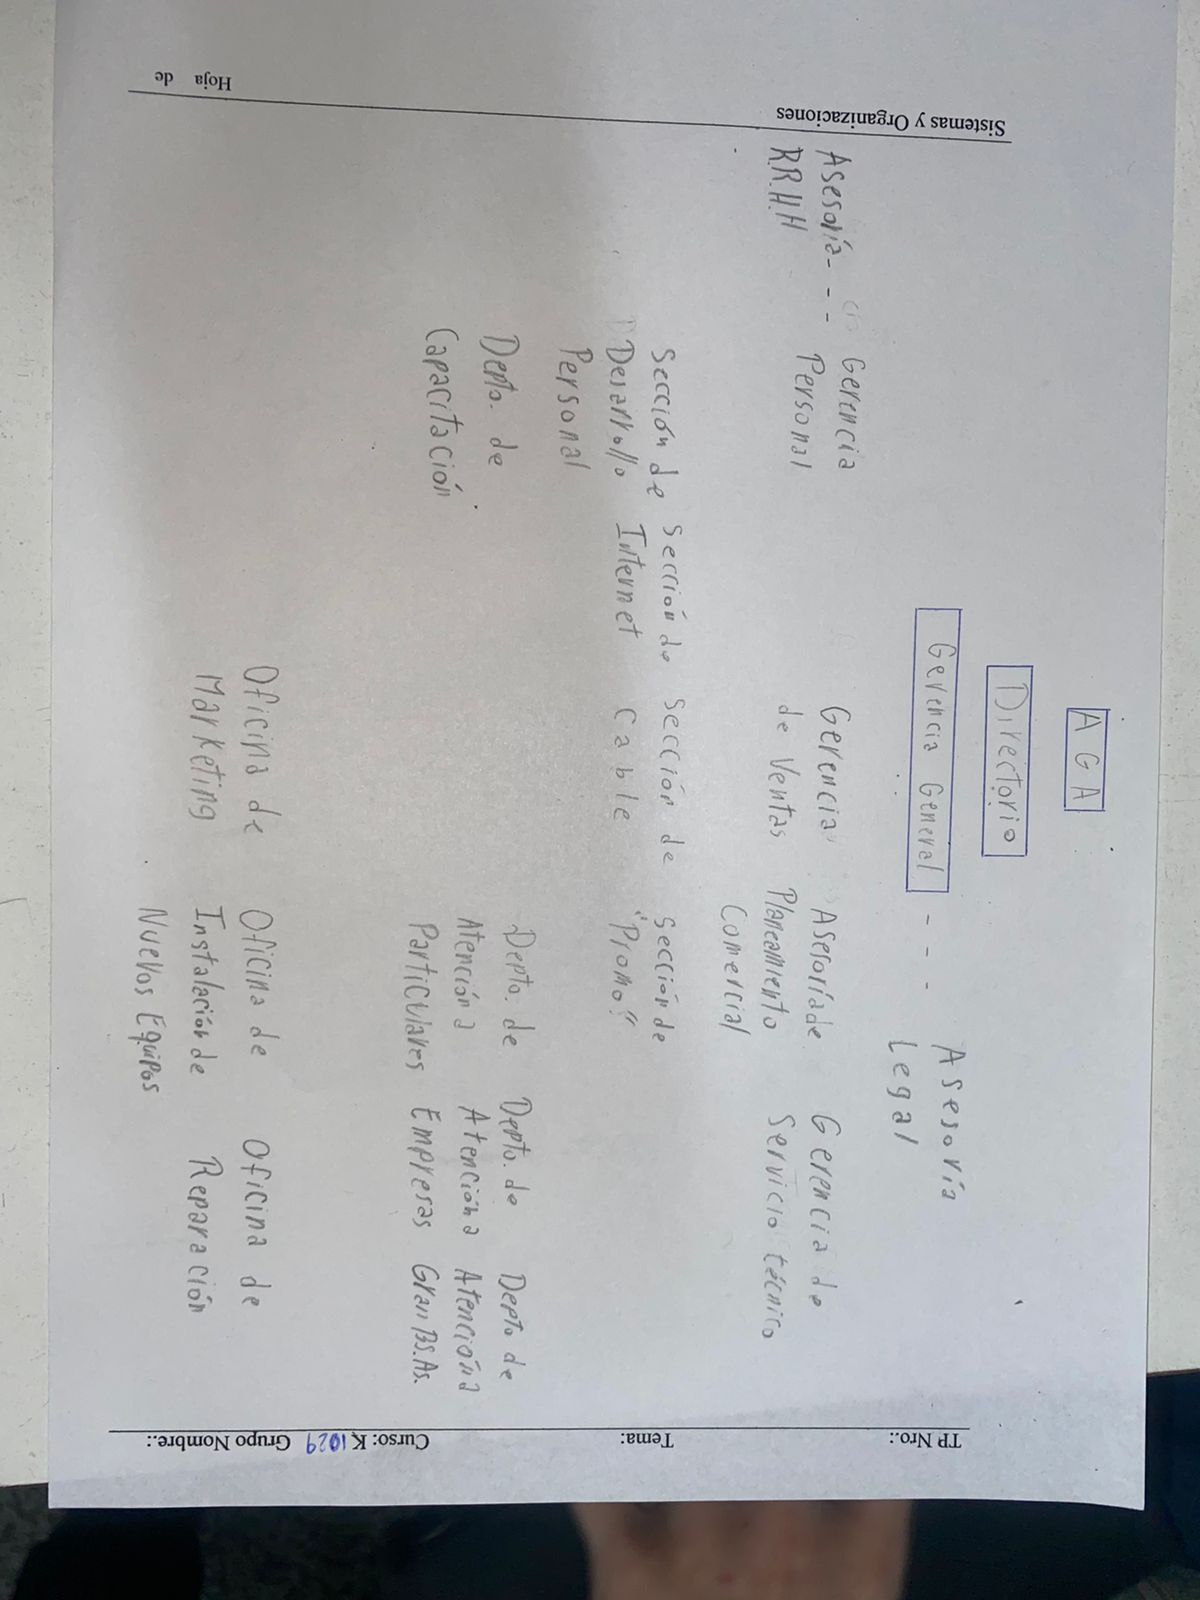 A G A
Directorio
Gerencia General - - - Asesoría
Legal
Asesoría - - -
R.R.H.H
Gerencia
Personal
Gerencia
de Ventas
Asesoría de
Planeamiento
Comercial
Gerencia de
Servicio técnico
Sección de
Desarrollo
Personal
Sección de
Internet
Sección de
Cable
Sección de
"Promo"
Depto. de
Capacitación
Depto. de
Atención a
Particulares
Depto. de
Atención a
Empresas
Depto de
Atención a
Gran Bs.As.
Oficina de
Marketing
Oficina de
Instalación de
Nuevos Equipos
Oficina de
Reparación
TP Nro.: Tema: Curso: K1029 Grupo Nombre.:
Sistemas y Organizaciones Hoja de